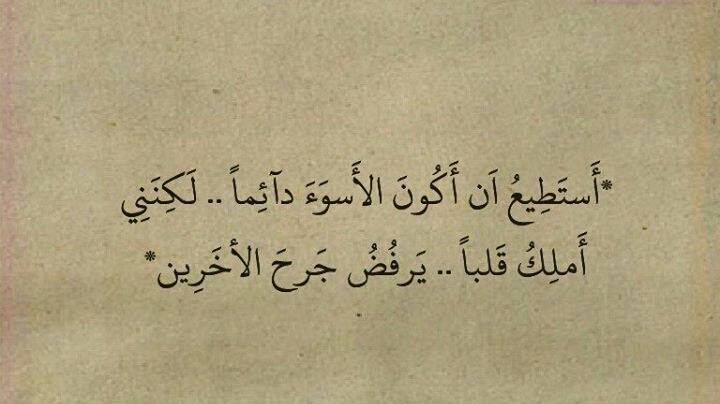 *أَستَطِيعُ اَن أَكُونَ الأَسوَءَ دآئِماً .. لَكِنَنِي
أَملِكُ قَلباً .. يَرفُضُ جَرحَ الأخَرِين*